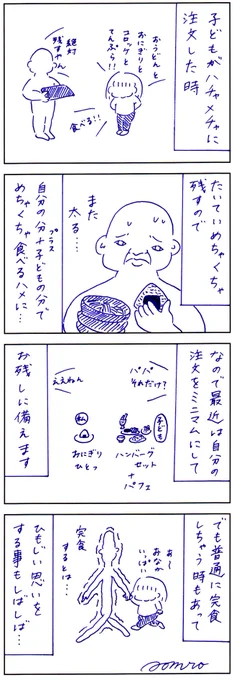 子どもがハチャメチャに
注文した時
おうどんと
おにぎりと
コロッケと
てんぷら!!
食べる!!
絶対
残すやん
たいていめちゃくちゃ
残すので
また
太る…
自分の分+子どもの分で
プラス
めちゃくちゃ食べるハメに…
なので最近は自分の
注文をミニマムにして
パパ
それだけ?
ええねん
子ども
ハンバーグ
セット
+
パフェ
私
おにぎり
ひとつ
お残しに備えます
でも普通に完食
しちゃう時もあって
あ〜
おなか
いっぱい
完食
するとは…
ひもじい思いを
する事もしばしば…